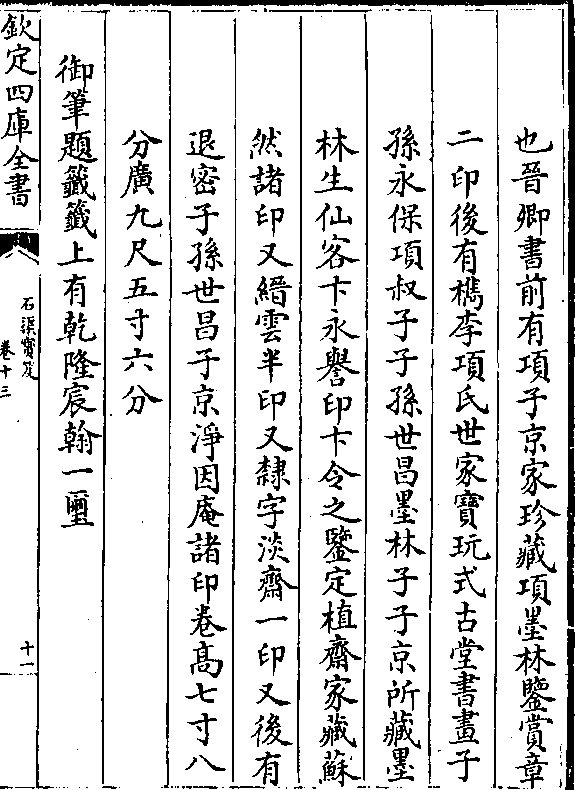 也晉卿書前有項子京家珍藏項墨林鑒賞章
二印後有檇李項氏世家寶玩式古堂書畫子
孫永保項叔子子孫世昌墨林子子京所藏墨
林生仙客卞永譽印卞令之鑒定植齋家藏蘇
然諸印又縉雲半印又隸字淡齋一印又後有
退密子孫世昌子京淨因庵諸印卷髙七寸八
分廣九尺五寸六分
御筆題籤籤上有乾隆宸翰一璽
欽定四庫全書
石渠寳笈
卷十三
十一